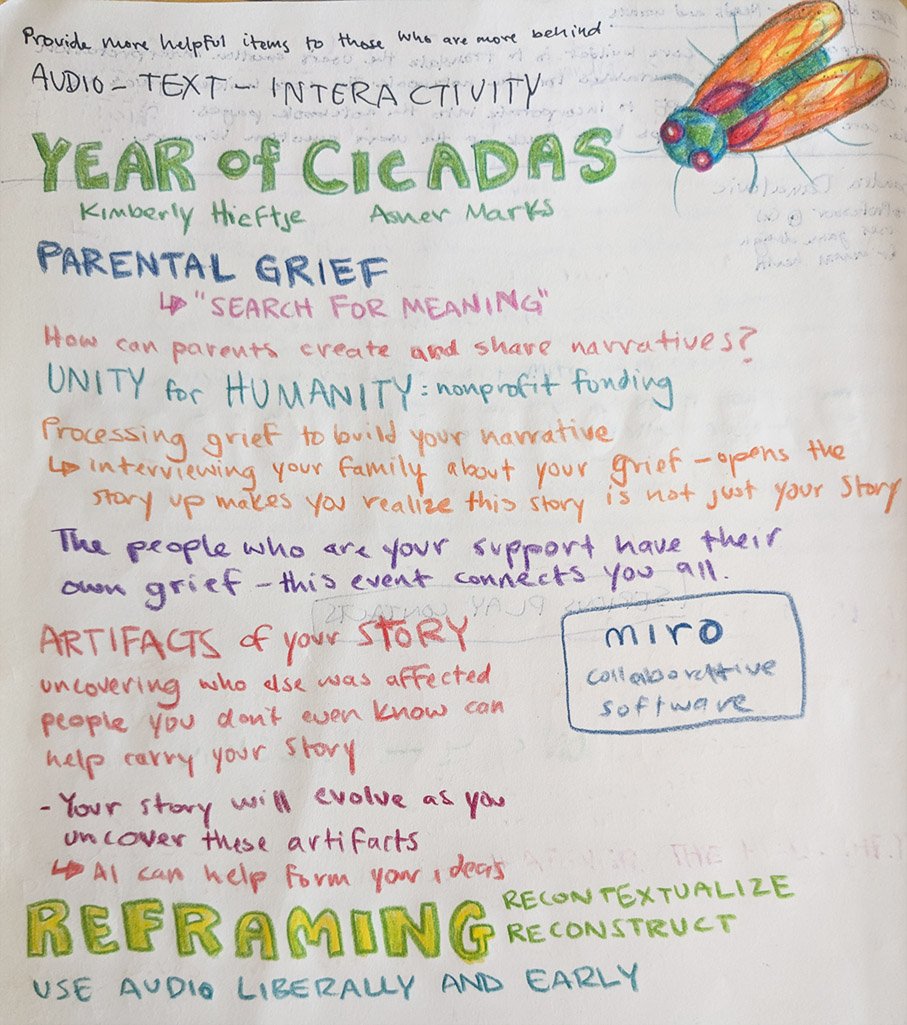 Provide more helpful items to those who are more behind.
AUDIO – TEXT – INTERACTIVITY
YEAR of CICADAS
Kimberly Hieftje Asher Marks
PARENTAL GRIEF
↳ "SEARCH FOR MEANING"
How can parents create and share narratives?
UNITY for HUMANITY: nonprofit funding
Processing grief to build your narrative
↳ interviewing your family about your grief – opens the
story up makes you realize this story is not just your story
The people who are your support have their
own grief – this event connects you all.
ARTIFACTS of your STORY
uncovering who else was affected
people you don't even know can
help carry your story
miro
collaborative
software
- Your story will evolve as you
uncover these artifacts
↳ AI can help form your ideas
REFRAMING
RECONTEXTUALIZE
RECONSTRUCT
USE AUDIO LIBERALLY AND EARLY